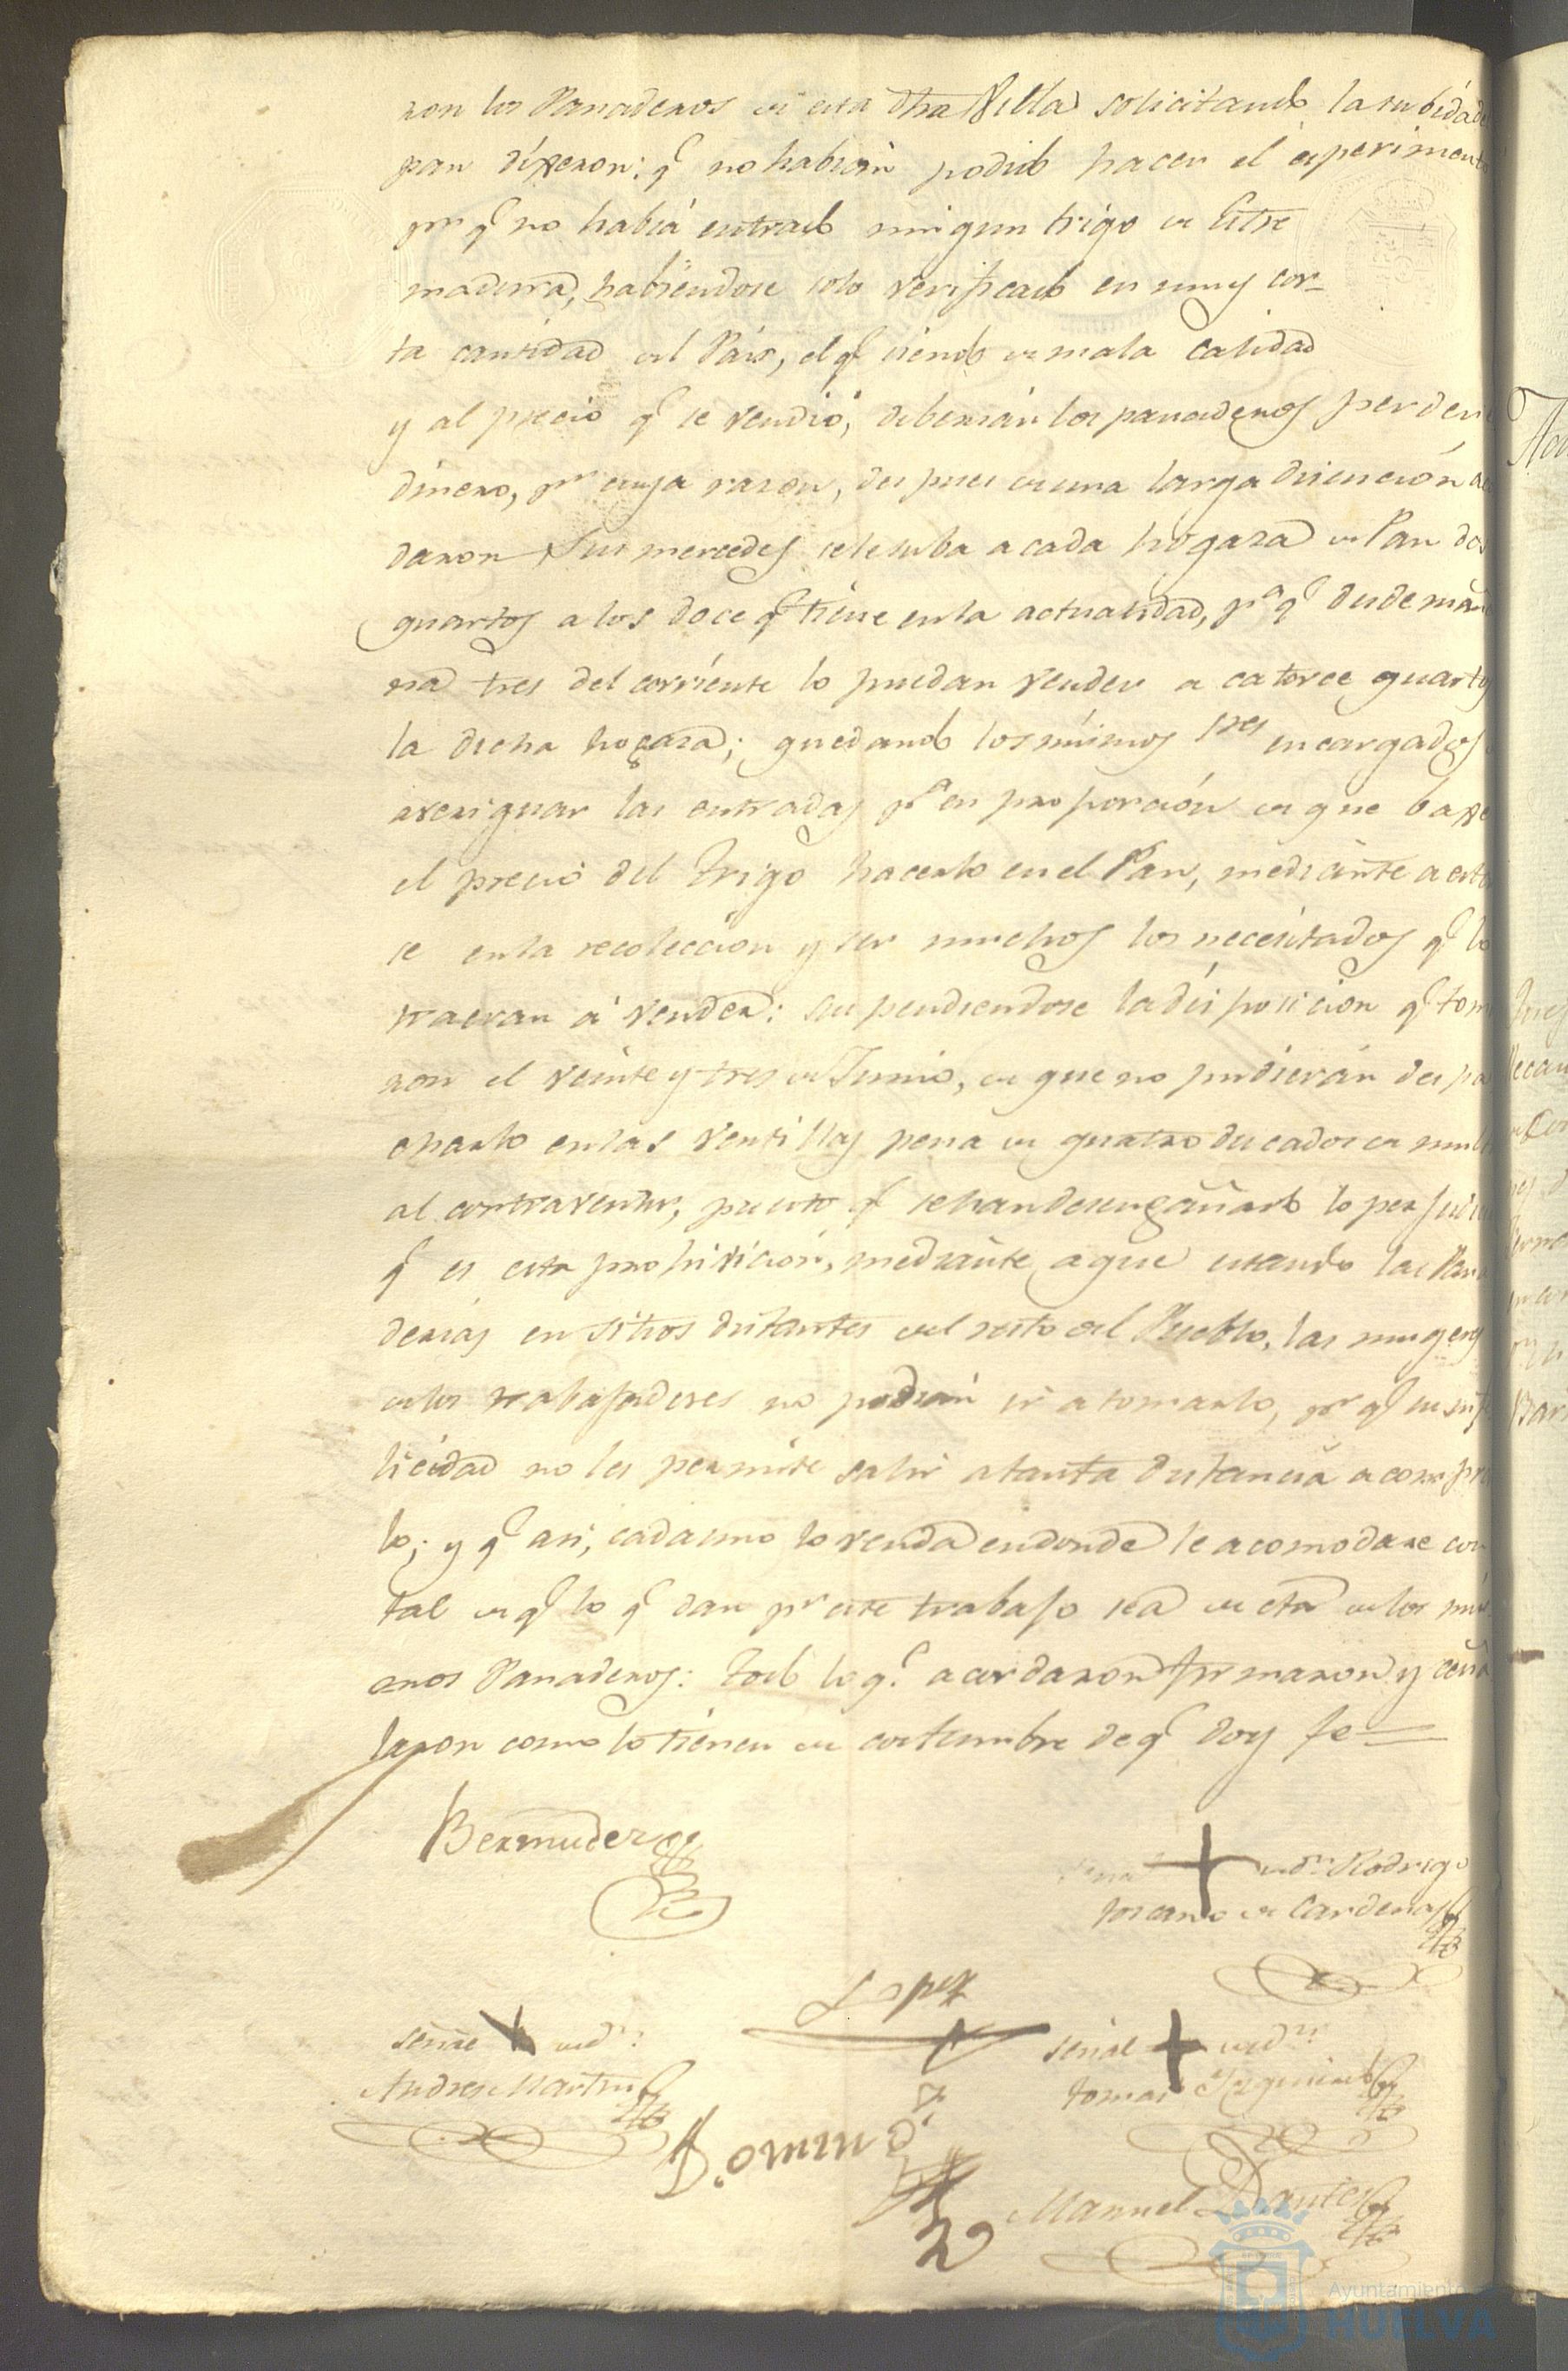 ron los Panaderos de esta dha Villa solicitando la subida de
pan dixeron: q.e no habian podido hacer el esperimento
por q.e no habia entrado ningun trigo de Estre
madura, habiendose solo verificado en muy cor-
ta cantidad del Pais, el q.e siendo de mala calidad
y al precio q.e se vendió, deberián los panaderos perder
dinero, p.r cuya razon, despues de una larga disención ac
daron Sus mercedes se le suba a cada hogaza de Pan dos
quartos a los doce q.e tiene en la actualidad, p.a q.e desde mañ
na tres del corriente lo puedan vender a catorce quartos
la dicha hogaza; quedando los mismos Sres encargados
averiguar las entradas p.a en proporción de que baxe
el precio del trigo hacerlo en el Pan, mediante a estar
se en la recoleccion y ser muchos los necesitados q.e lo
traeran á vender: suspendiendose la disposicion q.e toma
ron el veinte y tres de Junio, de que no pudierán despa
charlo en las ventillas pena de quatro ducados de mult
al contraventor, puesto q.e se han desengañado lo perjudi
q.e es esta prohivición, mediante a que estando las Pana
derias en sitios distantes del resto del Pueblo, las mugeres
de los trabajadores no podrán ir a tomarlo, por q.e su
licidad no les permite salir a tanta distancia a compra
lo; y q.e asi, cada uno lo venda en donde le acomodare con
tal de q.e lo q.e dan p.r este trabajo sea de cta de los mis
mos Panaderos: todo lo q.e acordaron firmaron y señ
laron como lo tienen de costumbre de q.e doy fe
Bermudez
Señal + de d.n Rodrigo
toscano de Cardenas
Lopez
señal + de d.n
Andres Martin
señal + de d.n
tomas Yzquierdo
Doming
Manuel Dantes
Ayuntamiento
HUELVA